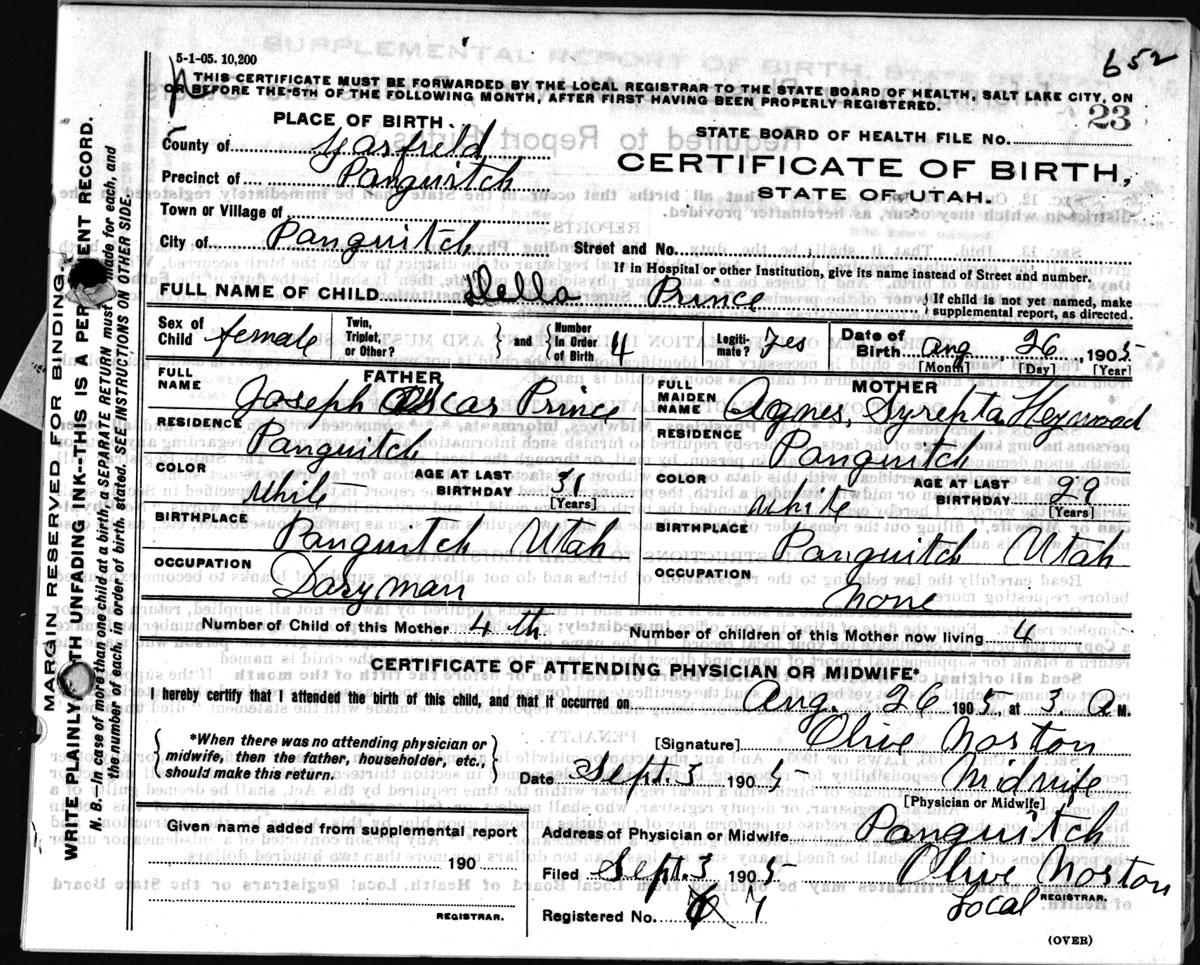 652
5-1-05. 10,200
THIS CERTIFICATE MUST BE FORWARDED BY THE LOCAL REGISTRAR TO THE STATE BOARD OF HEALTH, SALT LAKE CITY, ON
OR BEFORE THE 5TH OF THE FOLLOWING MONTH, AFTER FIRST HAVING BEEN PROPERLY REGISTERED.
23
PLACE OF BIRTH.
STATE BOARD OF HEALTH FILE No.
County of Garfield
CERTIFICATE OF BIRTH,
Precinct of Panguitch
STATE OF UTAH.
Town or Village of
City of Panguitch
Street and No.
If in Hospital or other Institution, give its name instead of Street and number.
FULL NAME OF CHILD Della Prince
{ If child is not yet named, make
supplemental report, as directed.
Sex of Child female
Twin, Triplet, or Other?
} and { Number In Order of Birth 4
Legiti- mate? Yes
Date of Birth Aug. 26, 1905
[Month] [Day] [Year]
FATHER
FULL NAME Joseph Oscar Prince
RESIDENCE Panguitch
COLOR White
AGE AT LAST BIRTHDAY 31
[Years]
BIRTHPLACE Panguitch Utah
OCCUPATION Daryman
MOTHER
FULL MAIDEN NAME Agnes, Syrepta Heywood
RESIDENCE Panguitch
COLOR White
AGE AT LAST BIRTHDAY 29
[Years]
BIRTHPLACE Panguitch Utah
OCCUPATION None
Number of Child of this Mother 4 th.
Number of children of this Mother now living 4
CERTIFICATE OF ATTENDING PHYSICIAN OR MIDWIFE*
I hereby certify that I attended the birth of this child, and that it occurred on Aug. 26 1905, at 3. A M.
{ *When there was no attending physician or
midwife, then the father, householder, etc.,
should make this return. }
[Signature] Olive Norton
Date Sept. 3 1905
Midwife
[Physician or Midwife]
Given name added from supplemental report
190
REGISTRAR.
Address of Physician or Midwife Panguitch
Filed Sept. 3 1905
Olive Norton
Local REGISTRAR.
Registered No. 7
(OVER)
MARGIN RESERVED FOR BINDING.
WRITE PLAINLY WITH UNFADING INK--THIS IS A PERMANENT RECORD.
N. B.—In case of more than one child at a birth, a SEPARATE RETURN must be made for each, and
the number of each, in order of birth, stated. SEE INSTRUCTIONS ON OTHER SIDE.